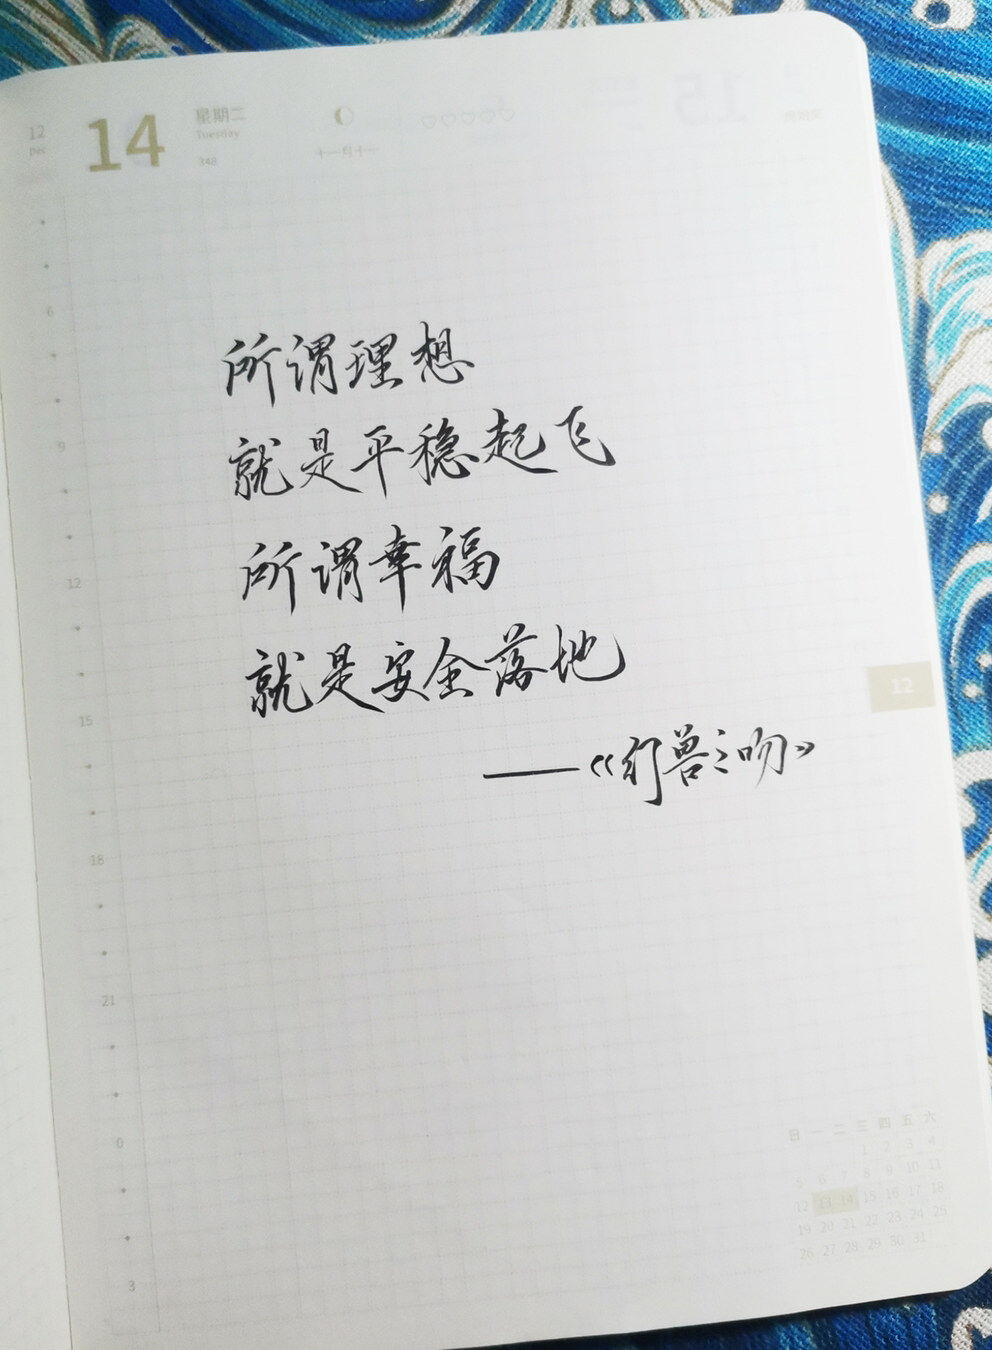 12
Dec
14
星期二
Tuesday
348
十一月十一
所谓理想
就是平稳起飞
所谓幸福
就是安全落地
——《幻兽之吻》
6
9
12
15
18
21
0
3
12
日 一 二 三 四 五 六
1 2 3 4
5 6 7 8 9 10 11
12 13 14 15 16 17 18
19 20 21 22 23 24 25
26 27 28 29 30 31